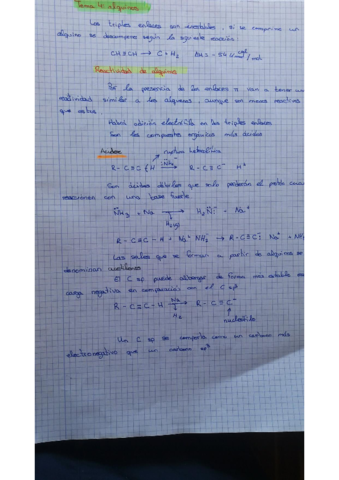 Tema 4: alquinos
Los triples enlaces son inestables, si se comprime un
alquino se descompone según la siguiente reacción:
CH≡CH → C + H₂
Reactividad de alquinos
Por la presencia de los enlaces π van a tener una
reactividad similar a los alquenos, aunque son menos reactivos
que estos
Habrá adición electrófila en los triples enlaces
Son los compuestos orgánicos más ácidos
Acidez: ruptura heterolítica
R - C≡C H NH₂⁻ → R - C≡C⁻ H⁺
Son ácidos débiles que solo perderán el protón cuando
reaccionen con una base fuerte
NH₃ + Na → H₂N⁻ + Na⁺
R - C≡C - H + Na⁺ NH₂ → R - C≡C⁻ Na⁺ + NH₃
Las sales que se forman a partir de alquinos se
denominan
El C sp puede albergar de forma más estable una
carga negativa en comparación con el C sp²
R - C≡C - H Na → R - C≡C⁻
H₂
nucleófilo
Un C sp se comporta como un carbono más
electronegativo que un carbono sp²